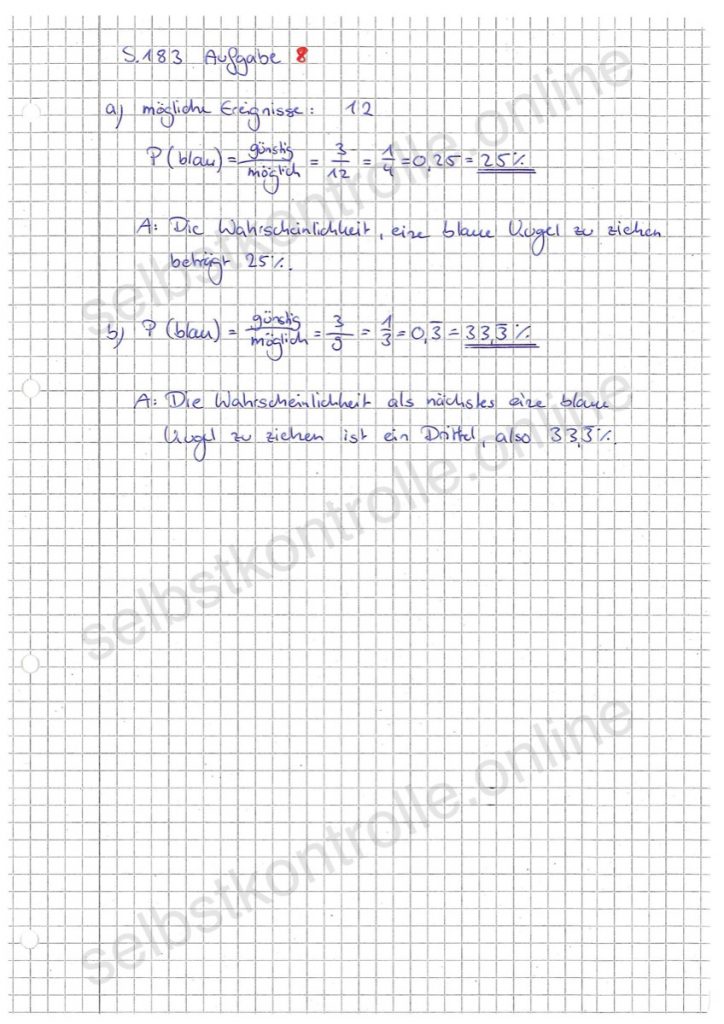 S. 183 Aufgabe 8
a) mögliche Ereignisse: 12
P(blau) = günstig/möglich = 3/12 = 1/4 = 0,25 = 25%
A: Die Wahrscheinlichkeit, eine blaue Kugel zu ziehen
beträgt 25%.
b) P(blau) = günstig/möglich = 3/9 = 1/3 = 0,3̅ = 33,3̅%
A: Die Wahrscheinlichkeit als nächstes eine blaue
Kugel zu ziehen ist ein Drittel, also 33,3̅%.
selbstkontrolle.online
selbstkontrolle.online
selbstkontrolle.online